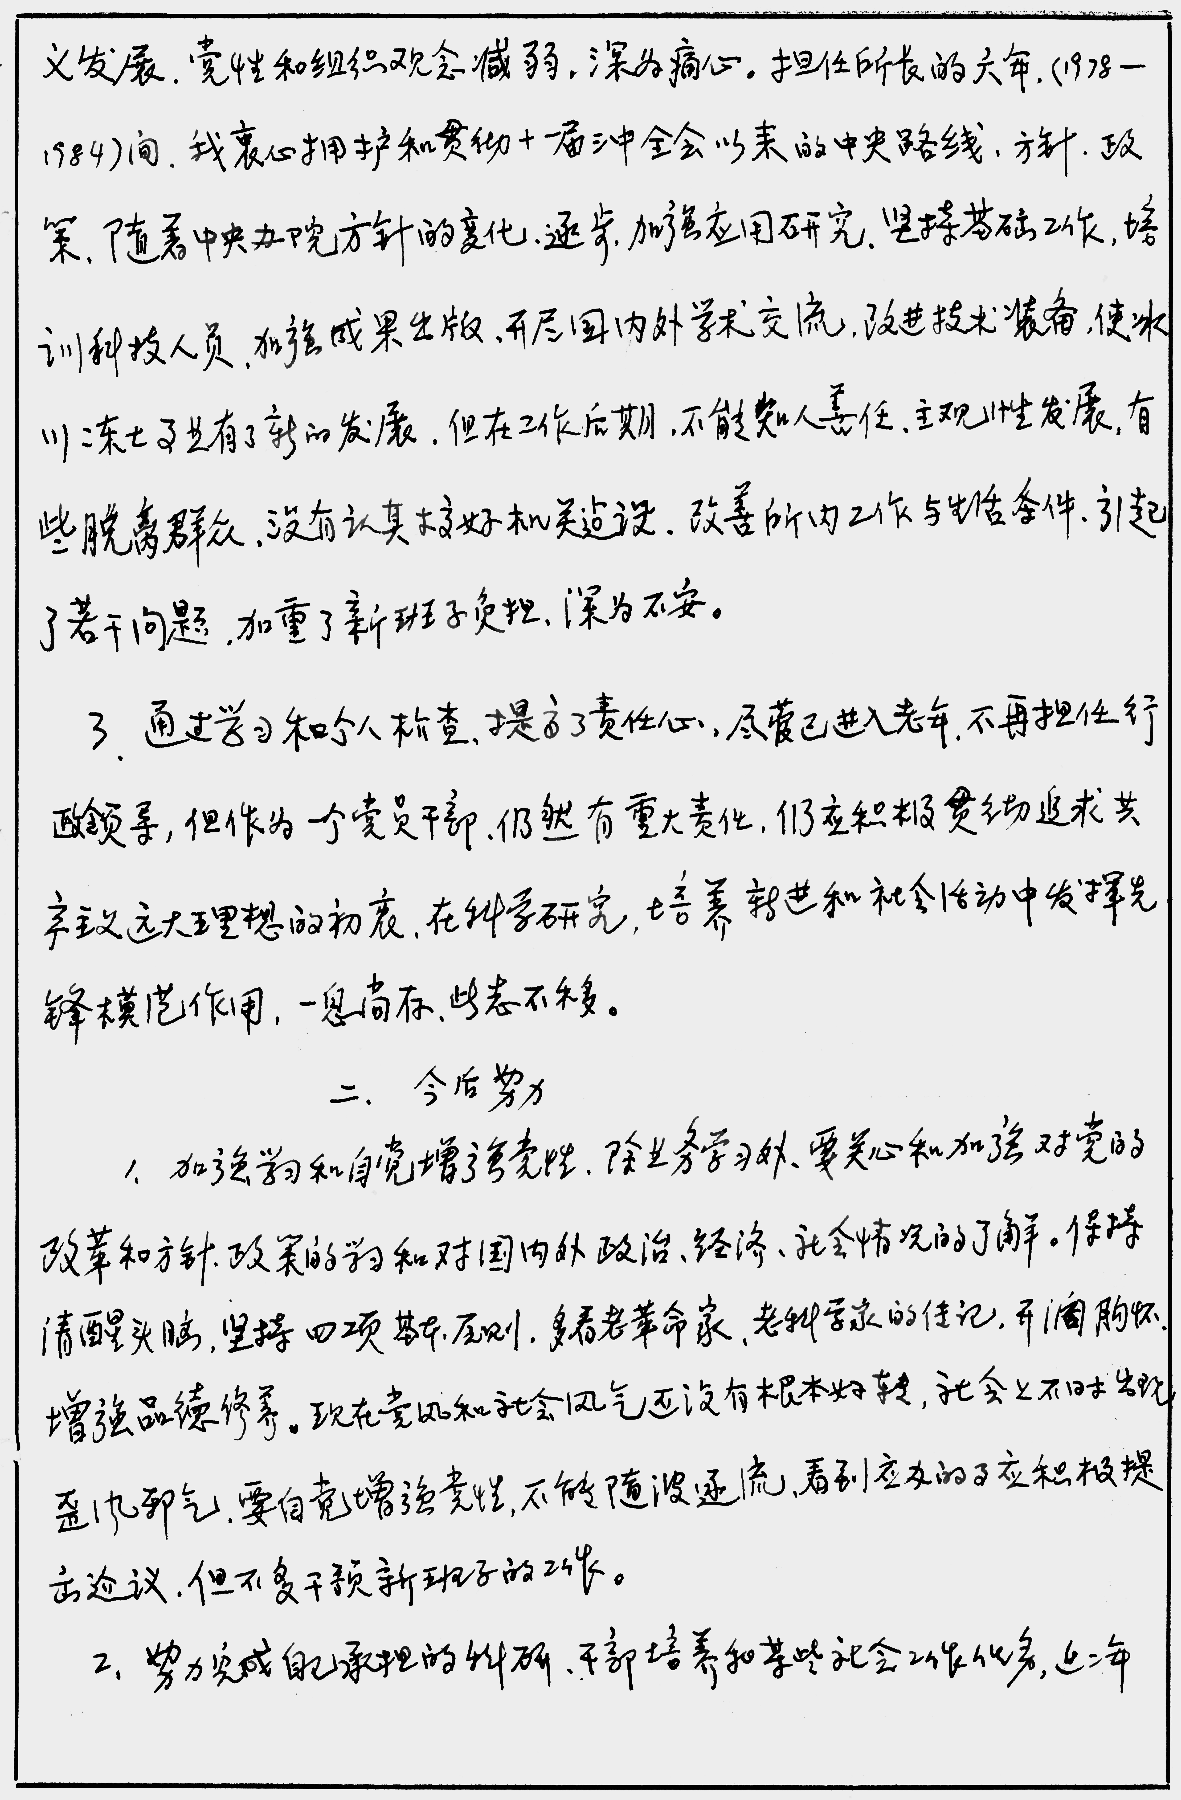 义发展、党性和组织观念减弱，深为痛心。担任所长的六年，(1978—
1984)间，我衷心拥护和贯彻十一届三中全会以来的中央路线、方针、政
策、随着中央办院方针的变化，逐步，加强应用研究、坚持基础工作，培
训科技人员，加强成果出版、开展国内外学术交流，改进技术装备，使冰
川冻土事业有了新的发展，但在工作后期，不能知人善任、主观性发展，有
些脱离群众，没有认真搞好机关建设，改善所内工作与生活条件，引起
了若干问题，加重了新班子负担、深为不安。
3、通过学习和个人检查、提高了责任心，尽管已进入老年，不再担任行
政领导，但作为一个党员干部、仍然有重大责任，仍应积极贯彻追求共
产主义远大理想的初衷、在科学研究，培养新进和社会活动中发挥先
锋模范作用，一息尚存、此志不移。
二、今后努力
1、加强学习和自觉增强党性、除业务学习外、要关心和加强对党的
改革和方针、政策的学习和对国内外政治、经济、社会情况的了解。保持
清醒头脑，坚持四项基本原则，多看老革命家、老科学家的传记，开阔胸怀，
增强品德修养。现在党风和社会风气还没有根本好转，社会上不时出现
歪风邪气，要自觉增强党性，不能随波逐流，看到应办的事应积极提
出建议，但不多干预新班子的工作。
2、努力完成自己承担的科研、干部培养和某些社会工作任务，近二年